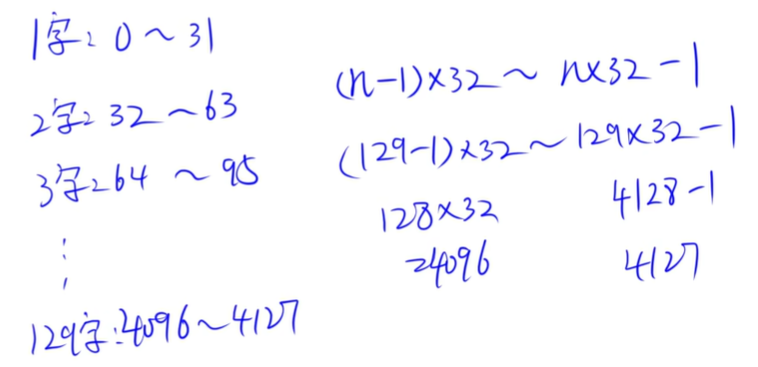 1字: 0～31
2字: 32～63
3字: 64～95
⋮
129字: 4096～4127
(n-1)×32～n×32-1
(129-1)×32～129×32-1
128×32
=4096
4128-1
4127